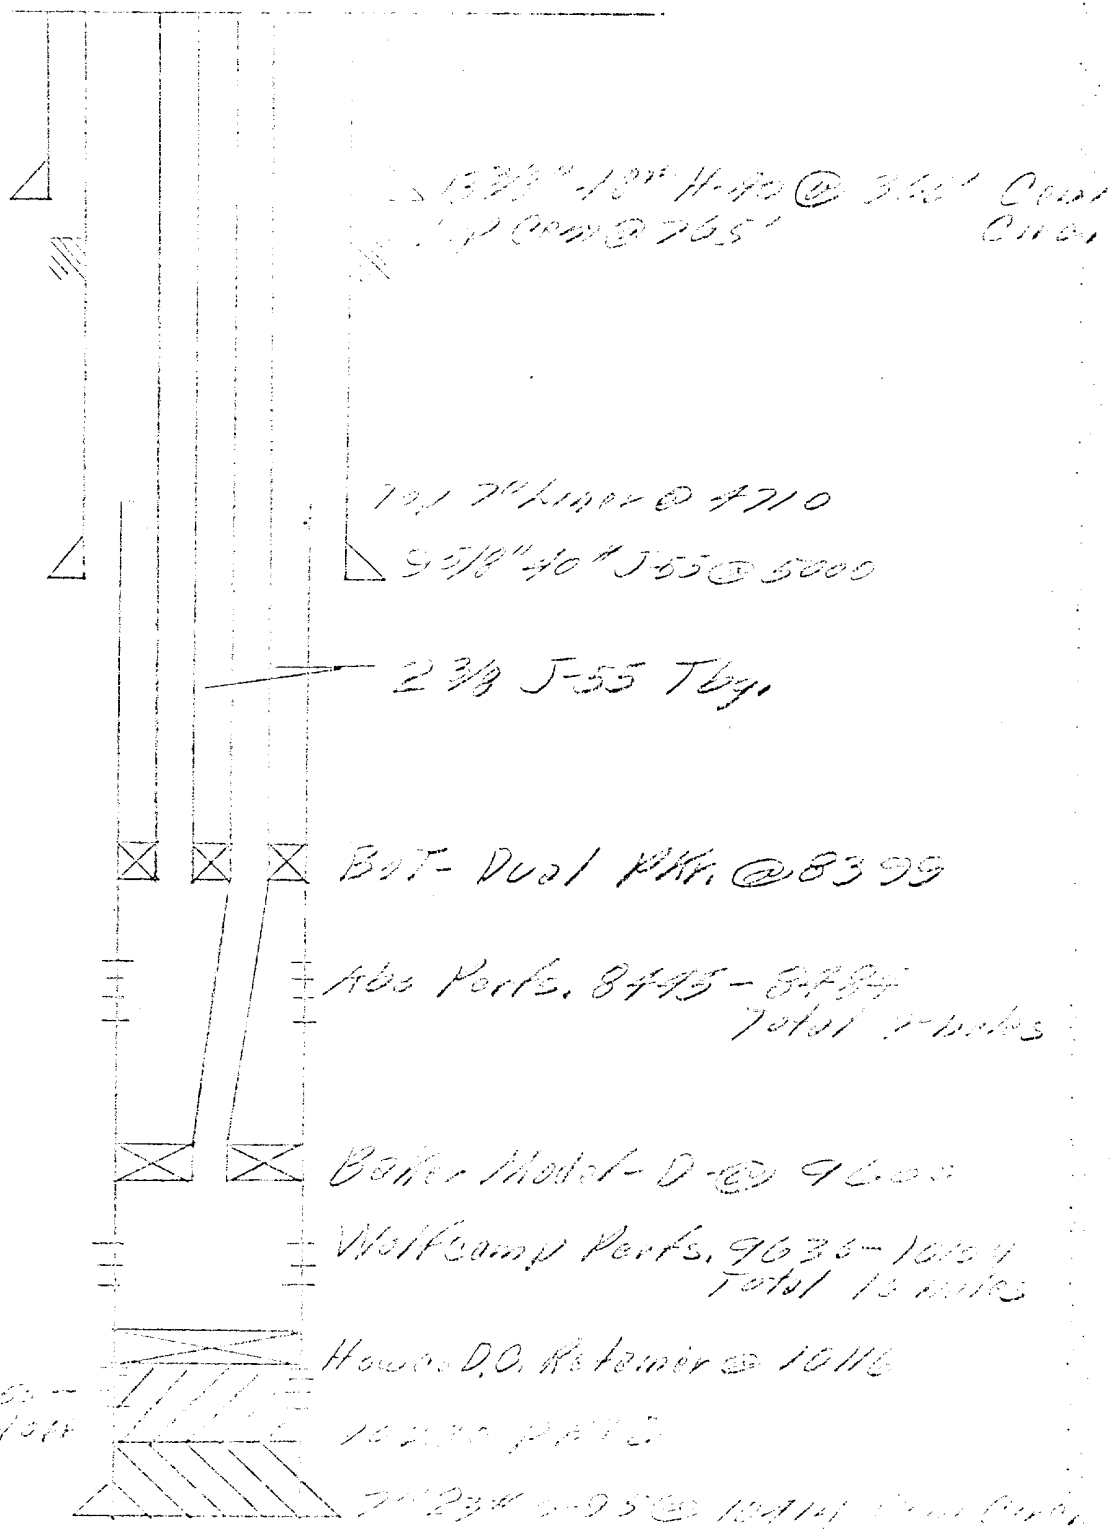 13 3/8" 48# H-40 @ 366' Cem
Top Cem @ 765' Circ.
Top 7" Liner @ 4710
9 5/8" 40# J-55 @ 5000
2 3/8 J-55 Tbg.
BOT- Dual PKr. @ 8399
Abo Perfs. 8445 - 8484
Total holes
Baker Model-D-@ 9600
Wolfcamp Perfs. 9630-10104
Total 13 holes
Howco D.O. Retainer @ 10116
PBTD
7" 23# @ 10414